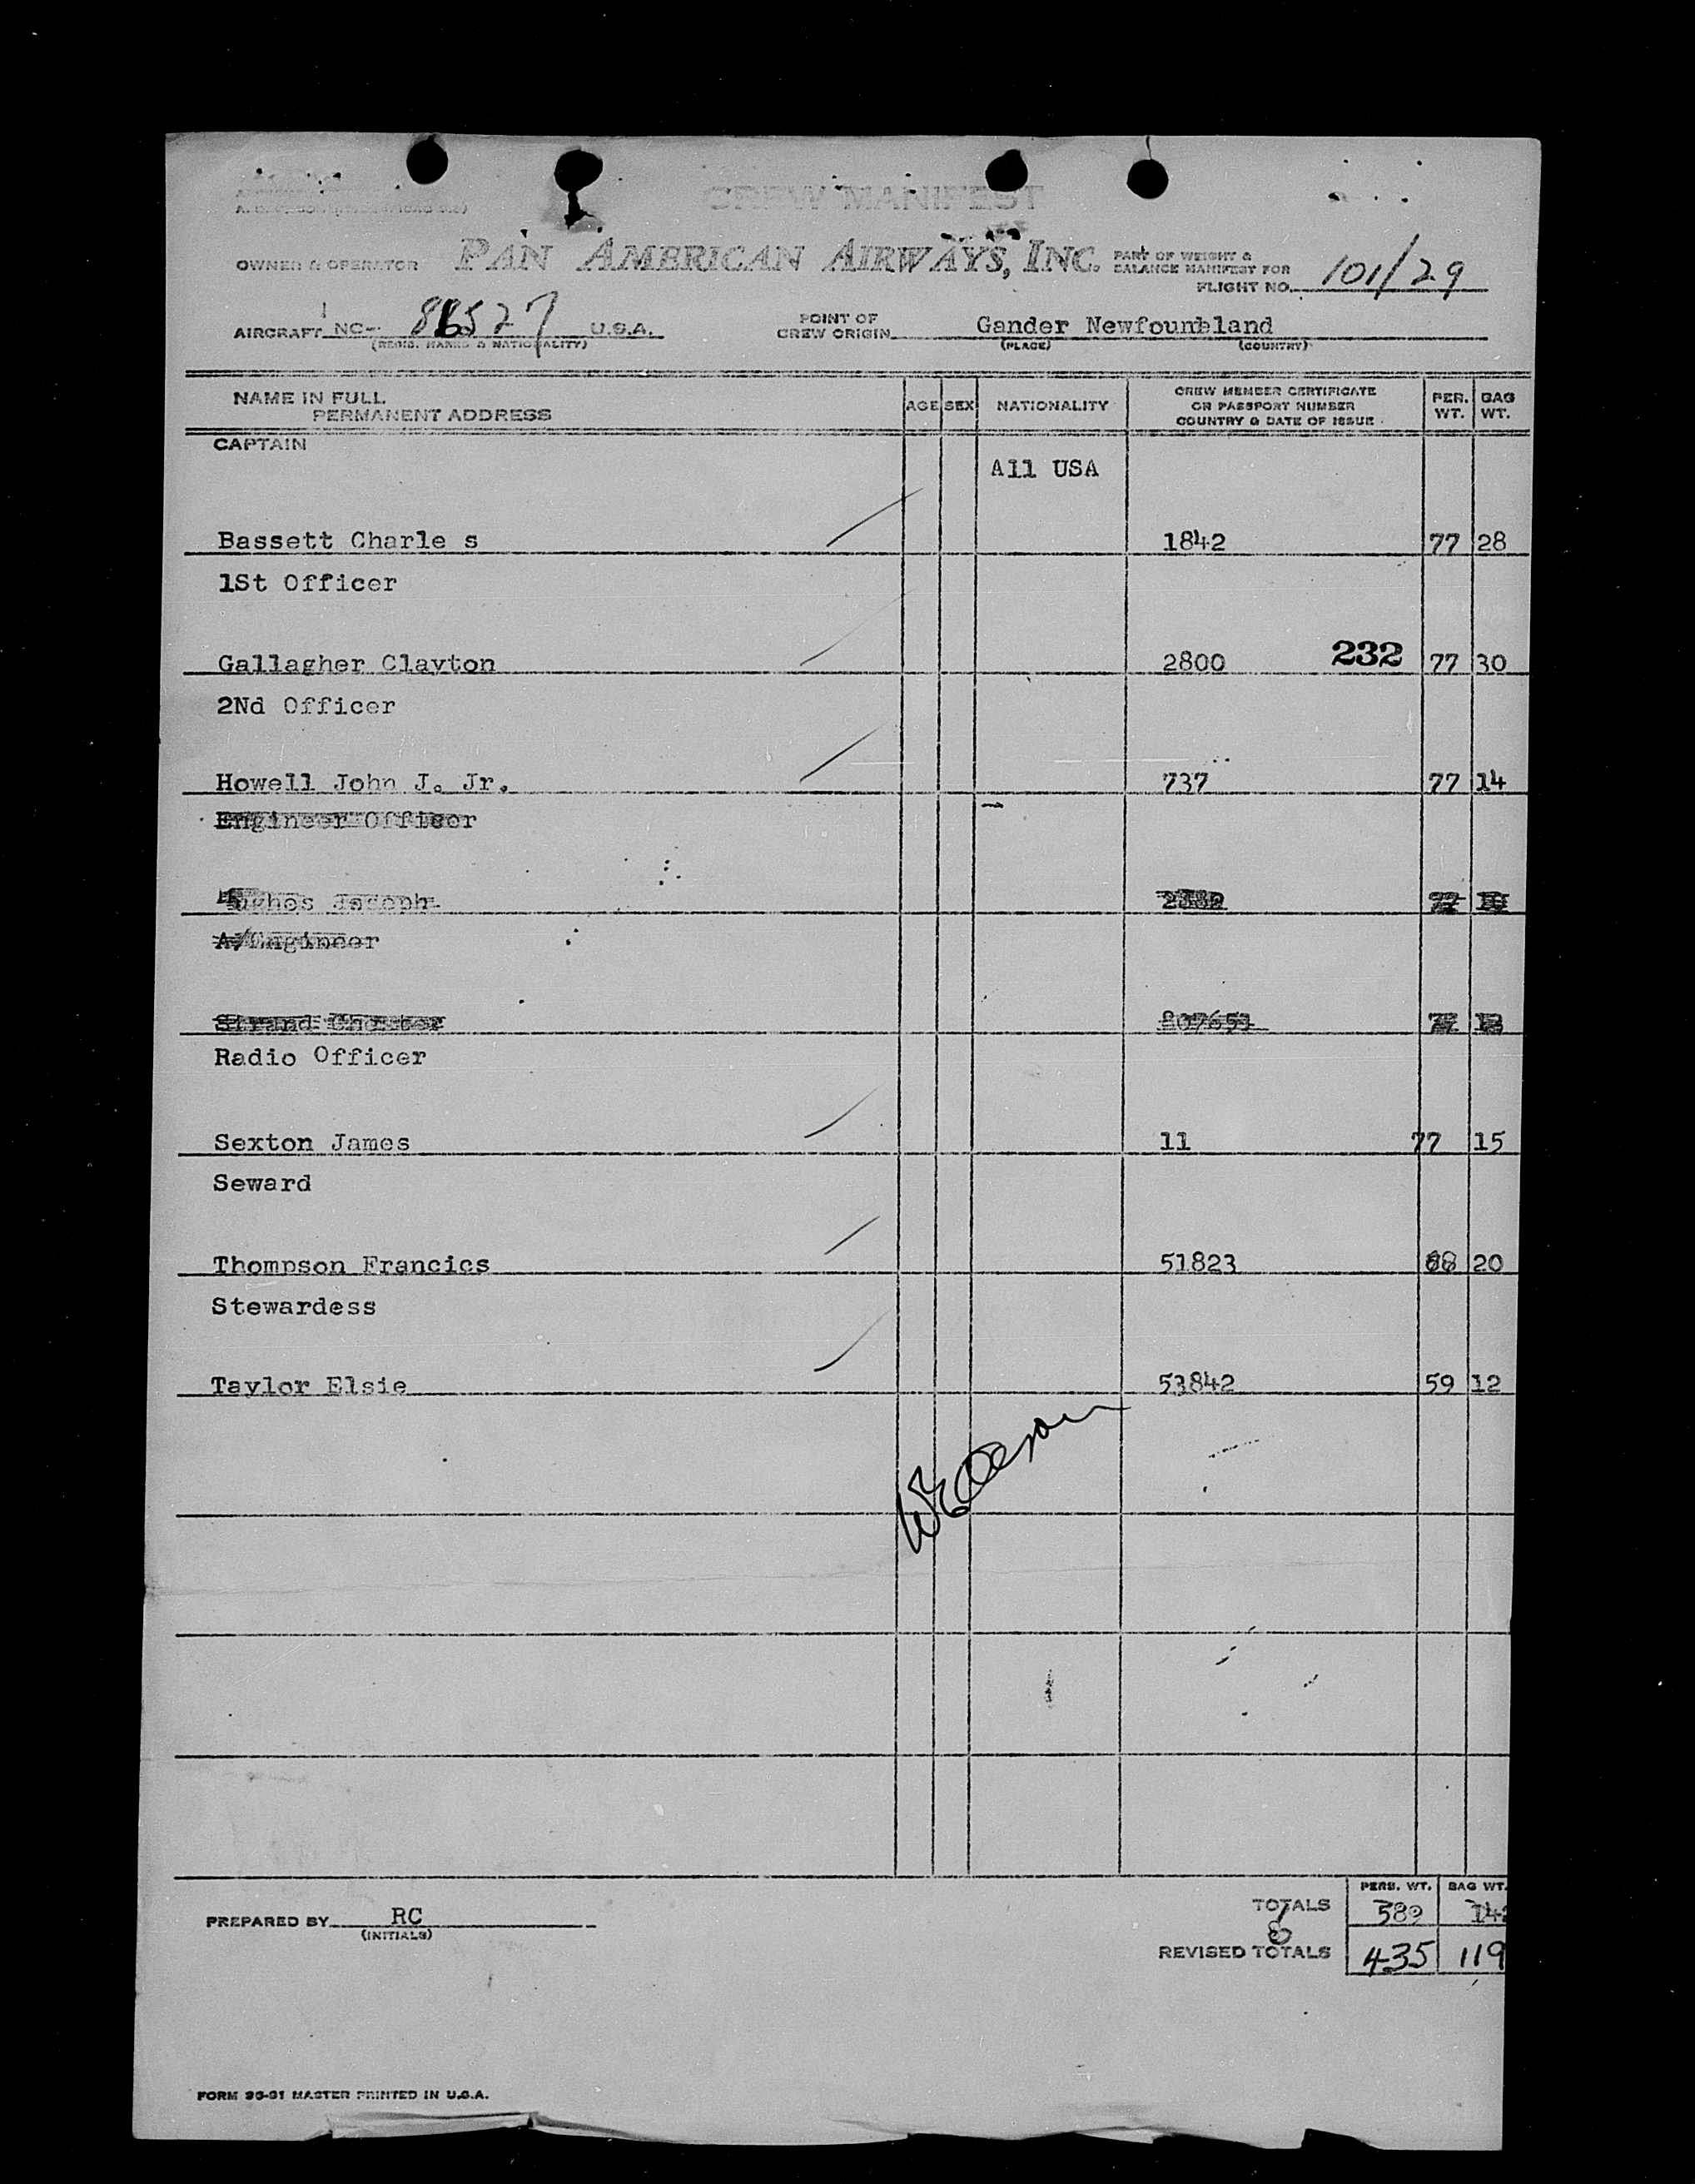 CREW MANIFEST
OWNER & OPERATOR PAN AMERICAN AIRWAYS, INC. PART OF WEIGHT & BALANCE MANIFEST FOR FLIGHT NO. 101/29
AIRCRAFT NC- 88527 U.S.A. POINT OF CREW ORIGIN Gander Newfounbland
(REGIS. MARKS & NATIONALITY) (PLACE) (COUNTRY)
NAME IN FULL PERMANENT ADDRESS AGE SEX NATIONALITY CREW MEMBER CERTIFICATE OR PASSPORT NUMBER COUNTRY & DATE OF ISSUE PER. WT. BAG WT.
CAPTAIN
All USA
Bassett Charle s 1842 77 28
1St Officer
Gallagher Clayton 2800 232 77 30
2Nd Officer
Howell John J. Jr. 737 77 14
Engineer Officer
Hughes Joseph
A/Engineer
Strand Chester 807653
Radio Officer
Sexton James 11 77 15
Seward
Thompson Francics 51823 68 20
Stewardess
Taylor Elsie 53842 59 12
PERS. WT. BAG WT.
TOTALS 589 142
PREPARED BY RC
(INITIALS)
REVISED TOTALS 435 119
FORM 96-91 MASTER PRINTED IN U.S.A.